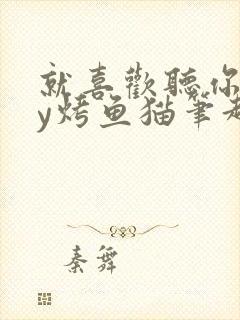 就喜歡聽你
y烤鱼猫筆趣
秦舞